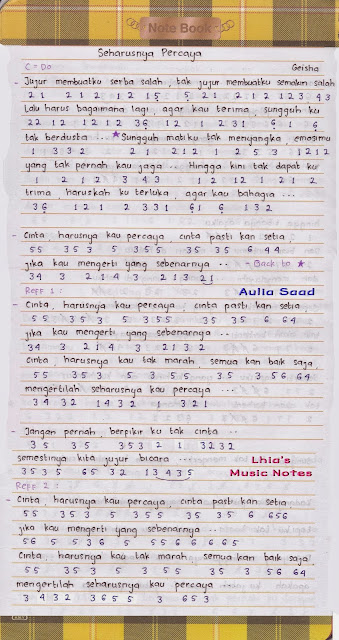 Note Book
Seharusnya Percaya
C = Do Geisha
- Jujur membuatku serba salah, tak jujur membuatku semakin salah
2 1 2 1 2 1 2 1 5 5 2 1 2 1 2 1 2 3 4 3
Lalu harus bagaimana lagi, agar kau terima, sungguh ku
2 2 1 2 1 2 1 2 3 6 1 2 1 2 3 1 6 1 6
tak berdusta ... ★ Sungguh matiku tak menyangka, emosimu
1 3 3 2 2 1 2 1 2 1 2 1 2 5 3 1 2 1 2
yang tak pernah kau jaga ... Hingga kini tak dapat ku
1 2 1 2 3 4 3 1 2 1 2 1 2 1 2
trima, haruskah ku terluka, agar kau bahagia ...
3 6 1 2 1 2 3 3 1 6 1 6 1 3 2
- Cinta, harusnya kau percaya, cinta pasti kan setia,
5 5 3 5 3 5 3 5 5 3 5 3 5 6 4 4
jika kau mengerti yang sebenarnya .. - Back to ★ -
3 4 3 2 1 4 3 2 1 3 2 1
Reff 1 : Aulia Saad
- Cinta, harusnya kau percaya, cinta pasti kan setia,
5 5 3 5 3 5 3 5 5 3 5 3 5 6 6 4
jika kau mengerti yang sebenarnya ..
3 4 3 2 1 4 3 2 1 3 2
Cinta harusnya kau tak marah, semua kan baik saja,
5 5 3 5 3 5 3 5 5 3 5 3 5 6 6 4
mengertilah seharusnya kau percaya ...
3 4 3 2 1 4 3 2 1 3 2 1
- Jangan pernah, berpikir ku tak cinta ..
3 5 3 5 3 5 3 2 1 3 2 3 2
semestinya kita jujur bicara .... Lhia's
3 5 3 5 6 5 3 2 1 3 4 3 5 Music Notes
Reff 2 :
- Cinta, harusnya kau percaya, cinta pasti kan setia
5 5 3 5 3 5 3 5 5 3 5 3 5 6 6 5 6
jika kau mengerti yang sebenarnya ..
5 6 5 5 3 6 5 5 6 6 6 5
Cinta harusnya kau tak marah, semua kan baik saja
5 5 3 5 3 5 3 5 5 3 5 3 5 6 6 4
mengertilah seharusnya kau percaya ..
3 4 3 2 3 6 5 5 3 6 5 3